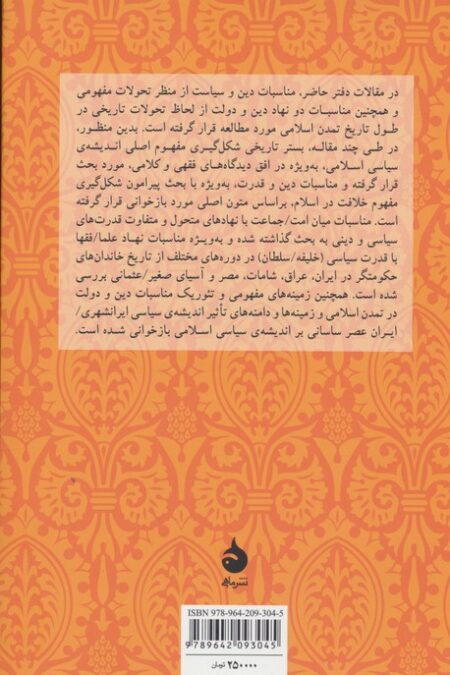 در مقالات دفتر حاضر، مناسبات دین و سیاست از منظر تحولات مفهومی
و همچنین مناسبات دو نهاد دین و دولت از لحاظ تحولات تاریخی در
طول تاریخ تمدن اسلامی مورد مطالعه قرار گرفته است. بدین منظور،
در طی چند مقاله، بستر تاریخی شکل‌گیری مفهوم اصلی اندیشه‌ی
سیاسی اسلامی، به‌ویژه در افق دیدگاه‌های فقهی و کلامی، مورد بحث
قرار گرفته و مناسبات دین و قدرت، به‌ویژه با بحث پیرامون شکل‌گیری
مفهوم خلافت در اسلام، براساس متون اصلی مورد بازخوانی قرار گرفته
است. مناسبات میان امت/جماعت با نهادهای متحول و متفاوت قدرت‌های
سیاسی و دینی به بحث گذاشته شده و به‌ویژه مناسبات نهاد علما/فقها
با قدرت سیاسی (خلیفه/سلطان) در دوره‌های مختلف از تاریخ خاندان‌های
حکومتگر در ایران، عراق، شامات، مصر و آسیای صغیر/عثمانی بررسی
شده است. همچنین زمینه‌های مفهومی و تئوریک مناسبات دین و دولت
در تمدن اسلامی و زمینه‌ها و دامنه‌های تأثیر اندیشه‌ی سیاسی ایرانشهری/
ایران عصر ساسانی بر اندیشه‌ی سیاسی اسلامی بازخوانی شده است.
نشر ماهی
ISBN 978-964-209-304-5
9 789642 093045
۲۵۰۰۰۰ تومان